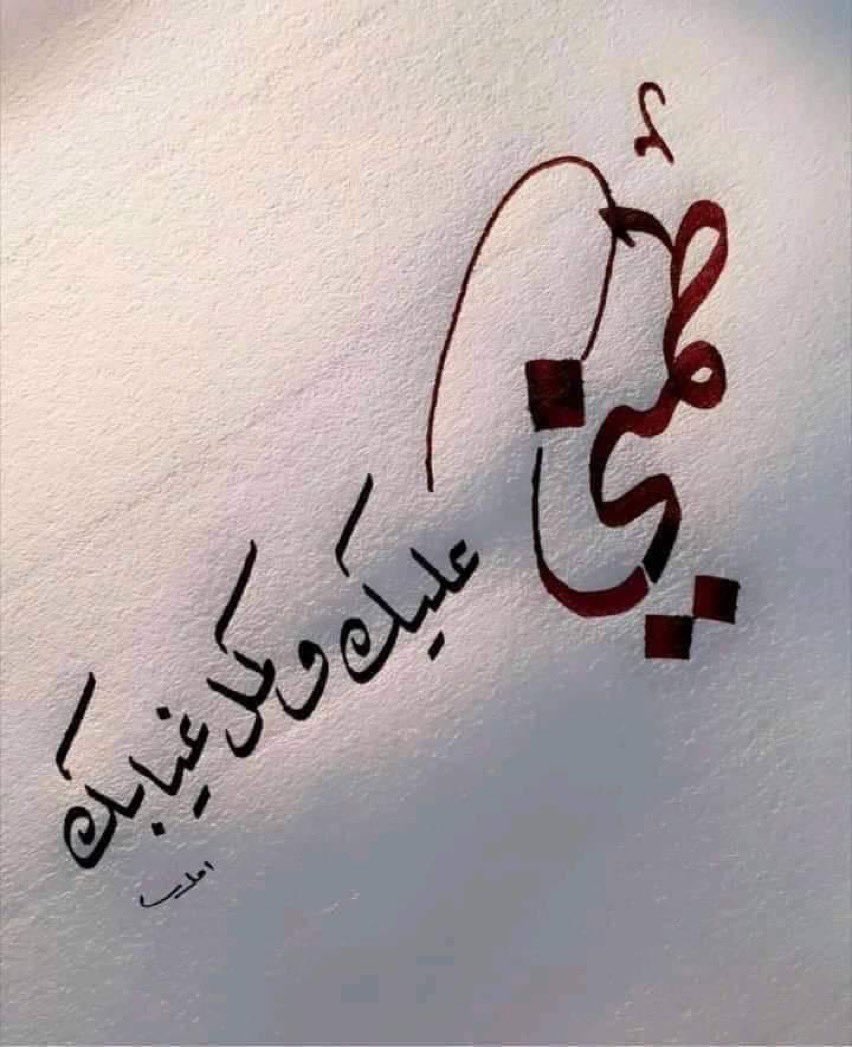 طمني
عليك و غيابك